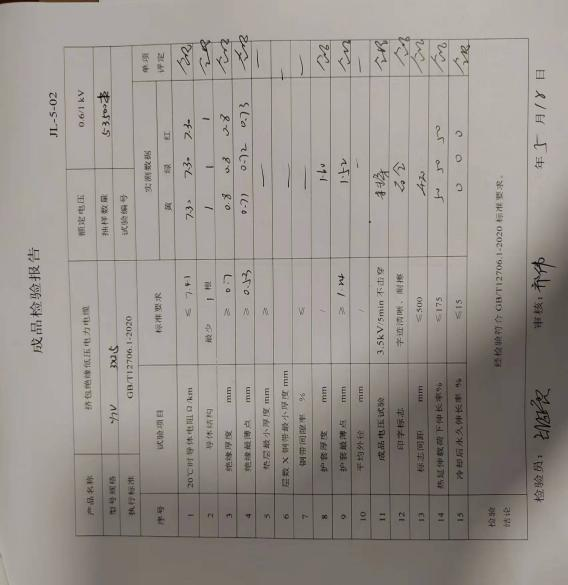 JL-5-02
成品检验报告
产品名称 挤包绝缘低压电力电缆 额定电压 0.6/1 kV
型号规格 抽样数量
执行标准 GB/T12706.1-2020 试验编号
序号 试验项目 标准要求 实测数据 单项评定
黄 绿 红
1 20℃时导体电阻 Ω/km ≤ 7.41 7.30 7.30 7.30 合格
2 导体结构 最少 1 根 1 1 1 合格
3 绝缘厚度 mm ≥ 0.7 0.8 0.8 0.8 合格
4 绝缘最薄点 mm ≥ 0.53 0.71 0.72 0.73 合格
5 垫层最小厚度 mm ≥ — —
6 层数 X 钢带最小厚度 mm — —
7 钢带间隙率 % ≤ — —
8 护套厚度 mm / 1.60 合格
9 护套最薄点 mm ≥ 1.24 1.52 合格
10 平均外径 mm / — —
11 成品电压试验 3.5kV/5min 不击穿 合格
12 印字标志 字迹清晰、耐擦 合格
13 标志间距 mm ≤500 420 合格
14 热延伸载荷下伸长率% ≤175 50 50 50 合格
15 冷却后永久伸长率 % ≤15 0 0 0 合格
检验结论 经检验符合 GB/T12706.1-2020 标准要求。
检验员： 审核： 年 5 月 18 日